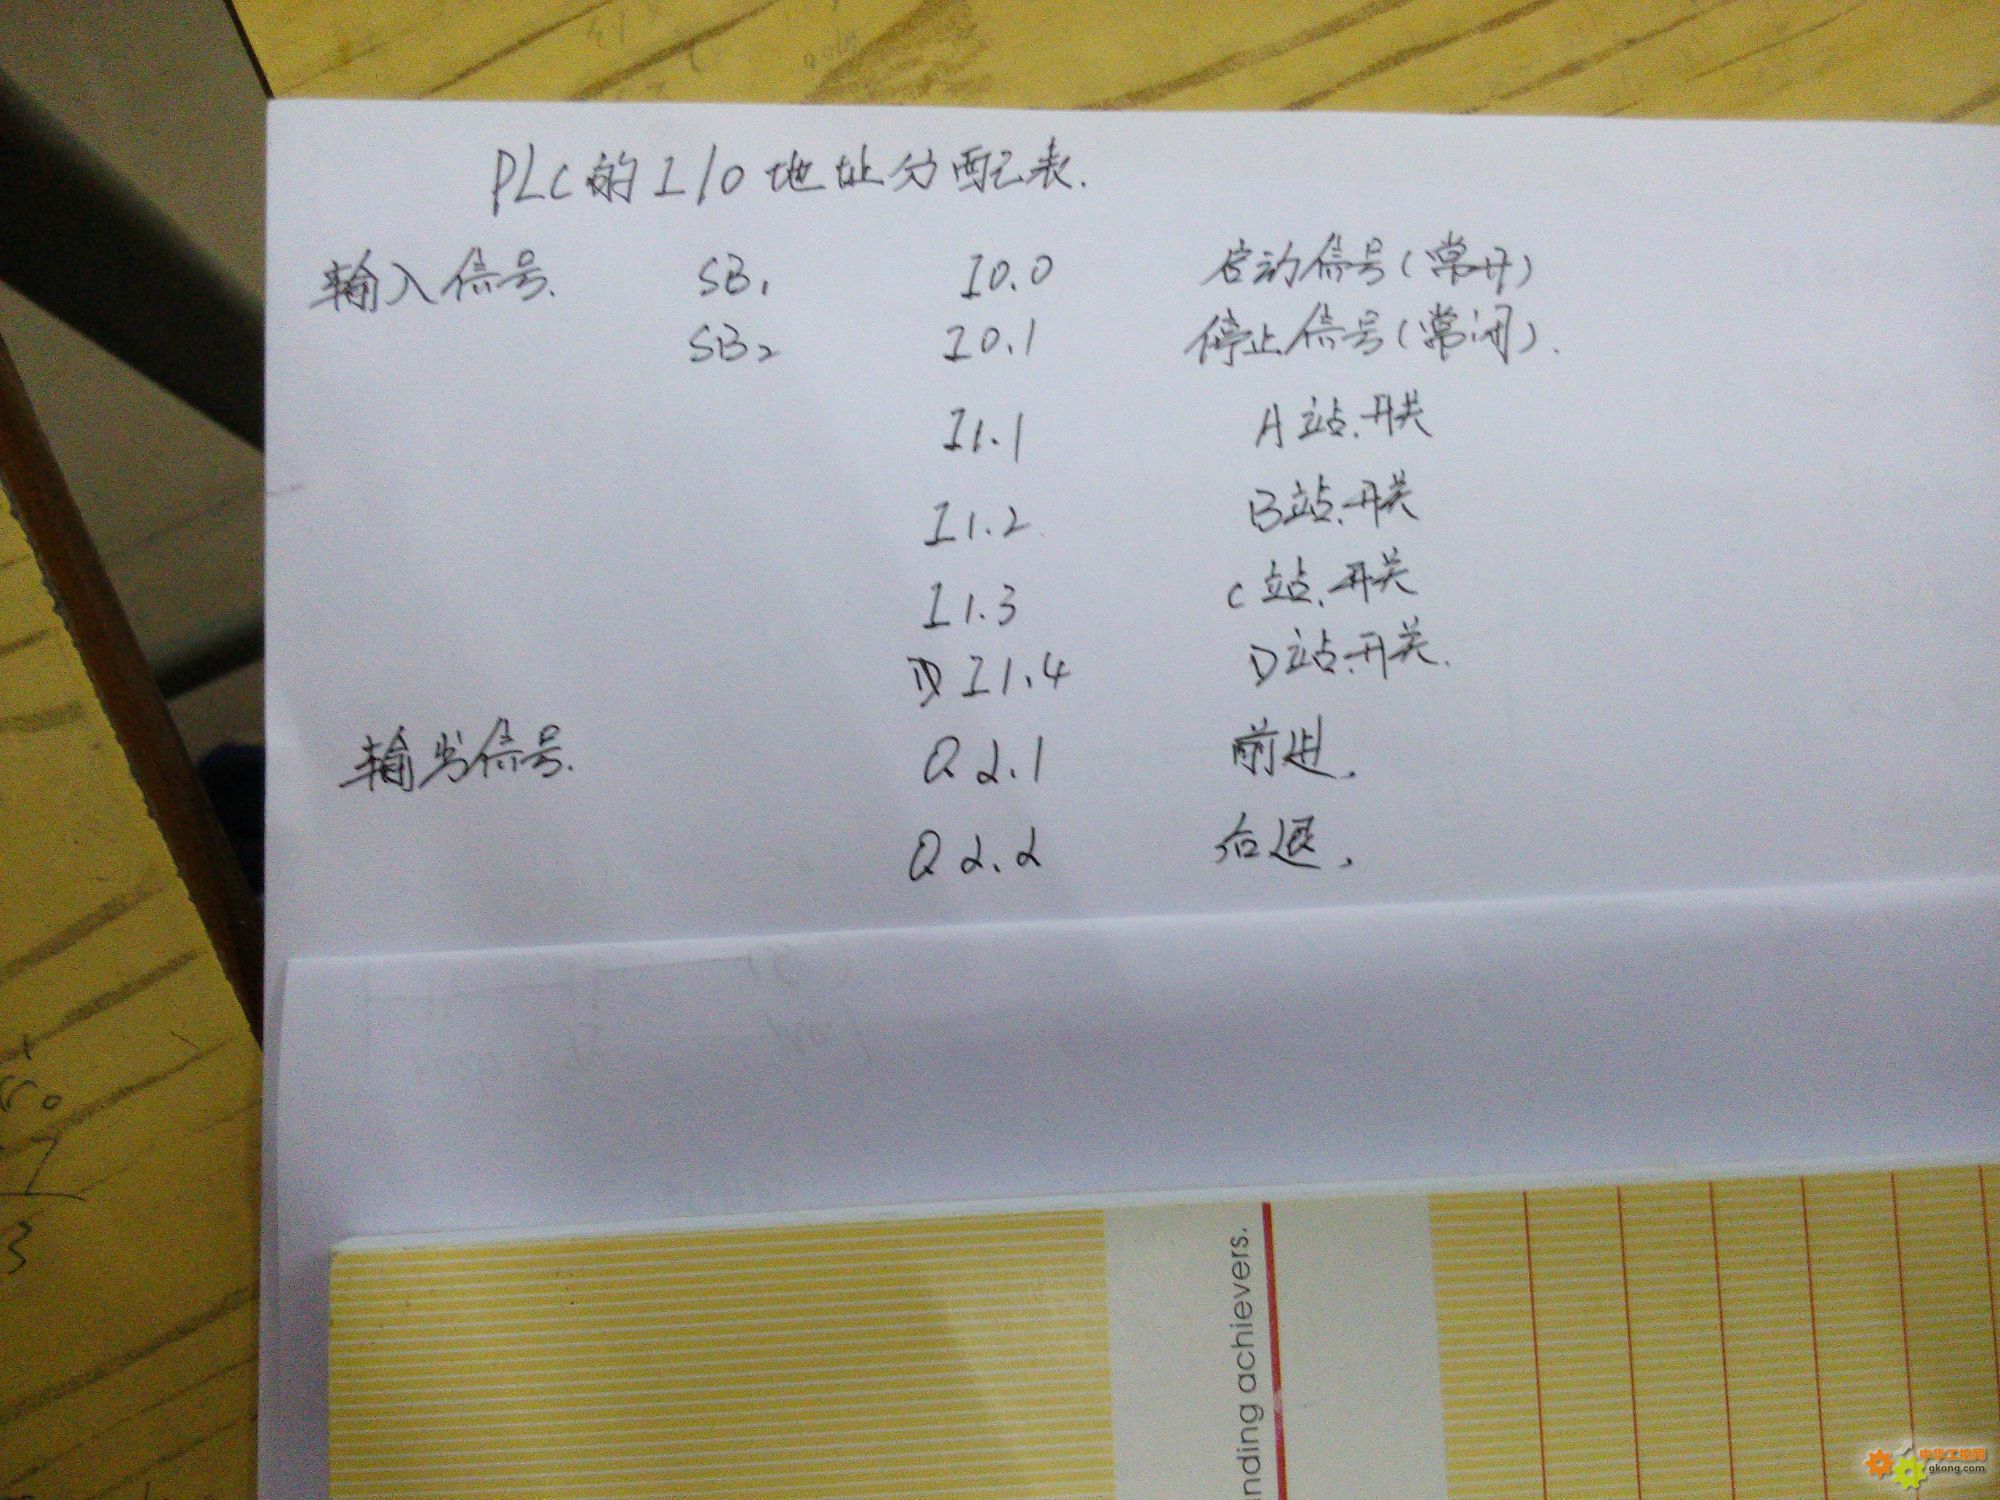 PLC的I/O地址分配表.
输入信号. SB1 I0.0 启动信号(常开)
SB2 I0.1 停止信号(常闭).
I1.1 A站.开关
I1.2 B站.开关
I1.3 C站.开关
I1.4 D站.开关.
输出信号. Q2.1 前进.
Q2.2 后退.
nding achievers.
3
中华工控网
gkong.com